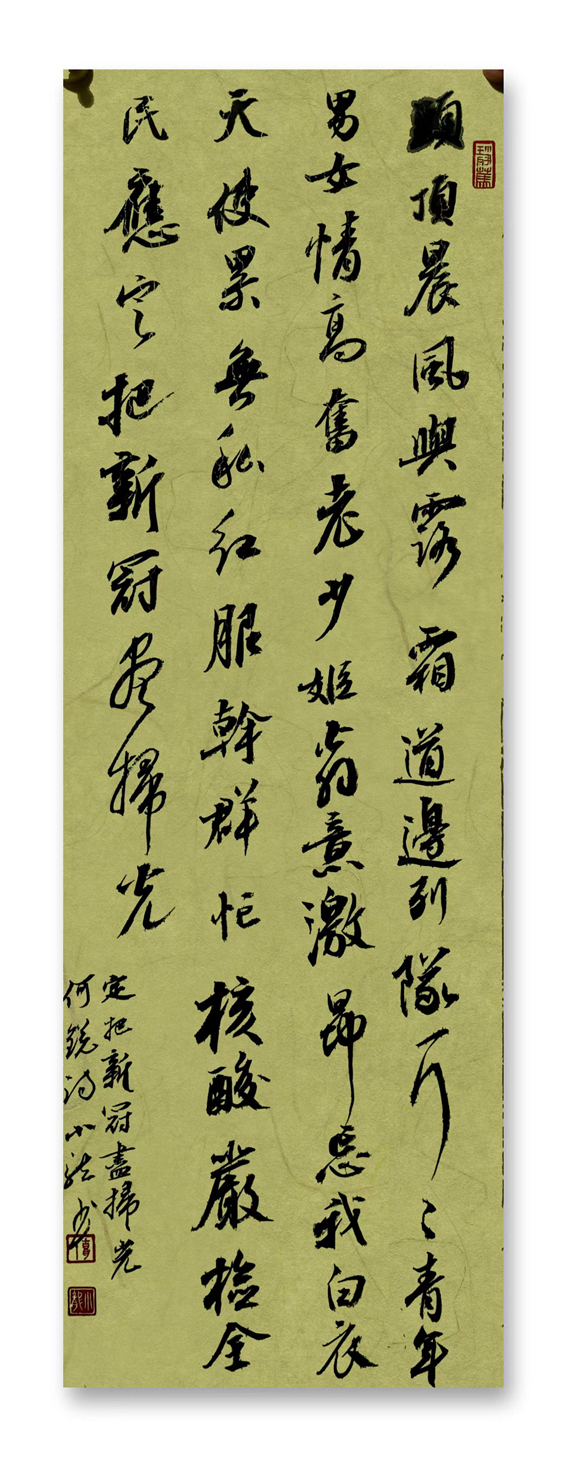 頭頂晨風與露霜道邊列隊一行〻青年
男女情高奮老少姬翁意激昂忘我白衣
天使累無私紅服幹群忙核酸嚴檢全
民應定把新冠盡掃光
定把新冠盡掃光
何銳詩小龍書